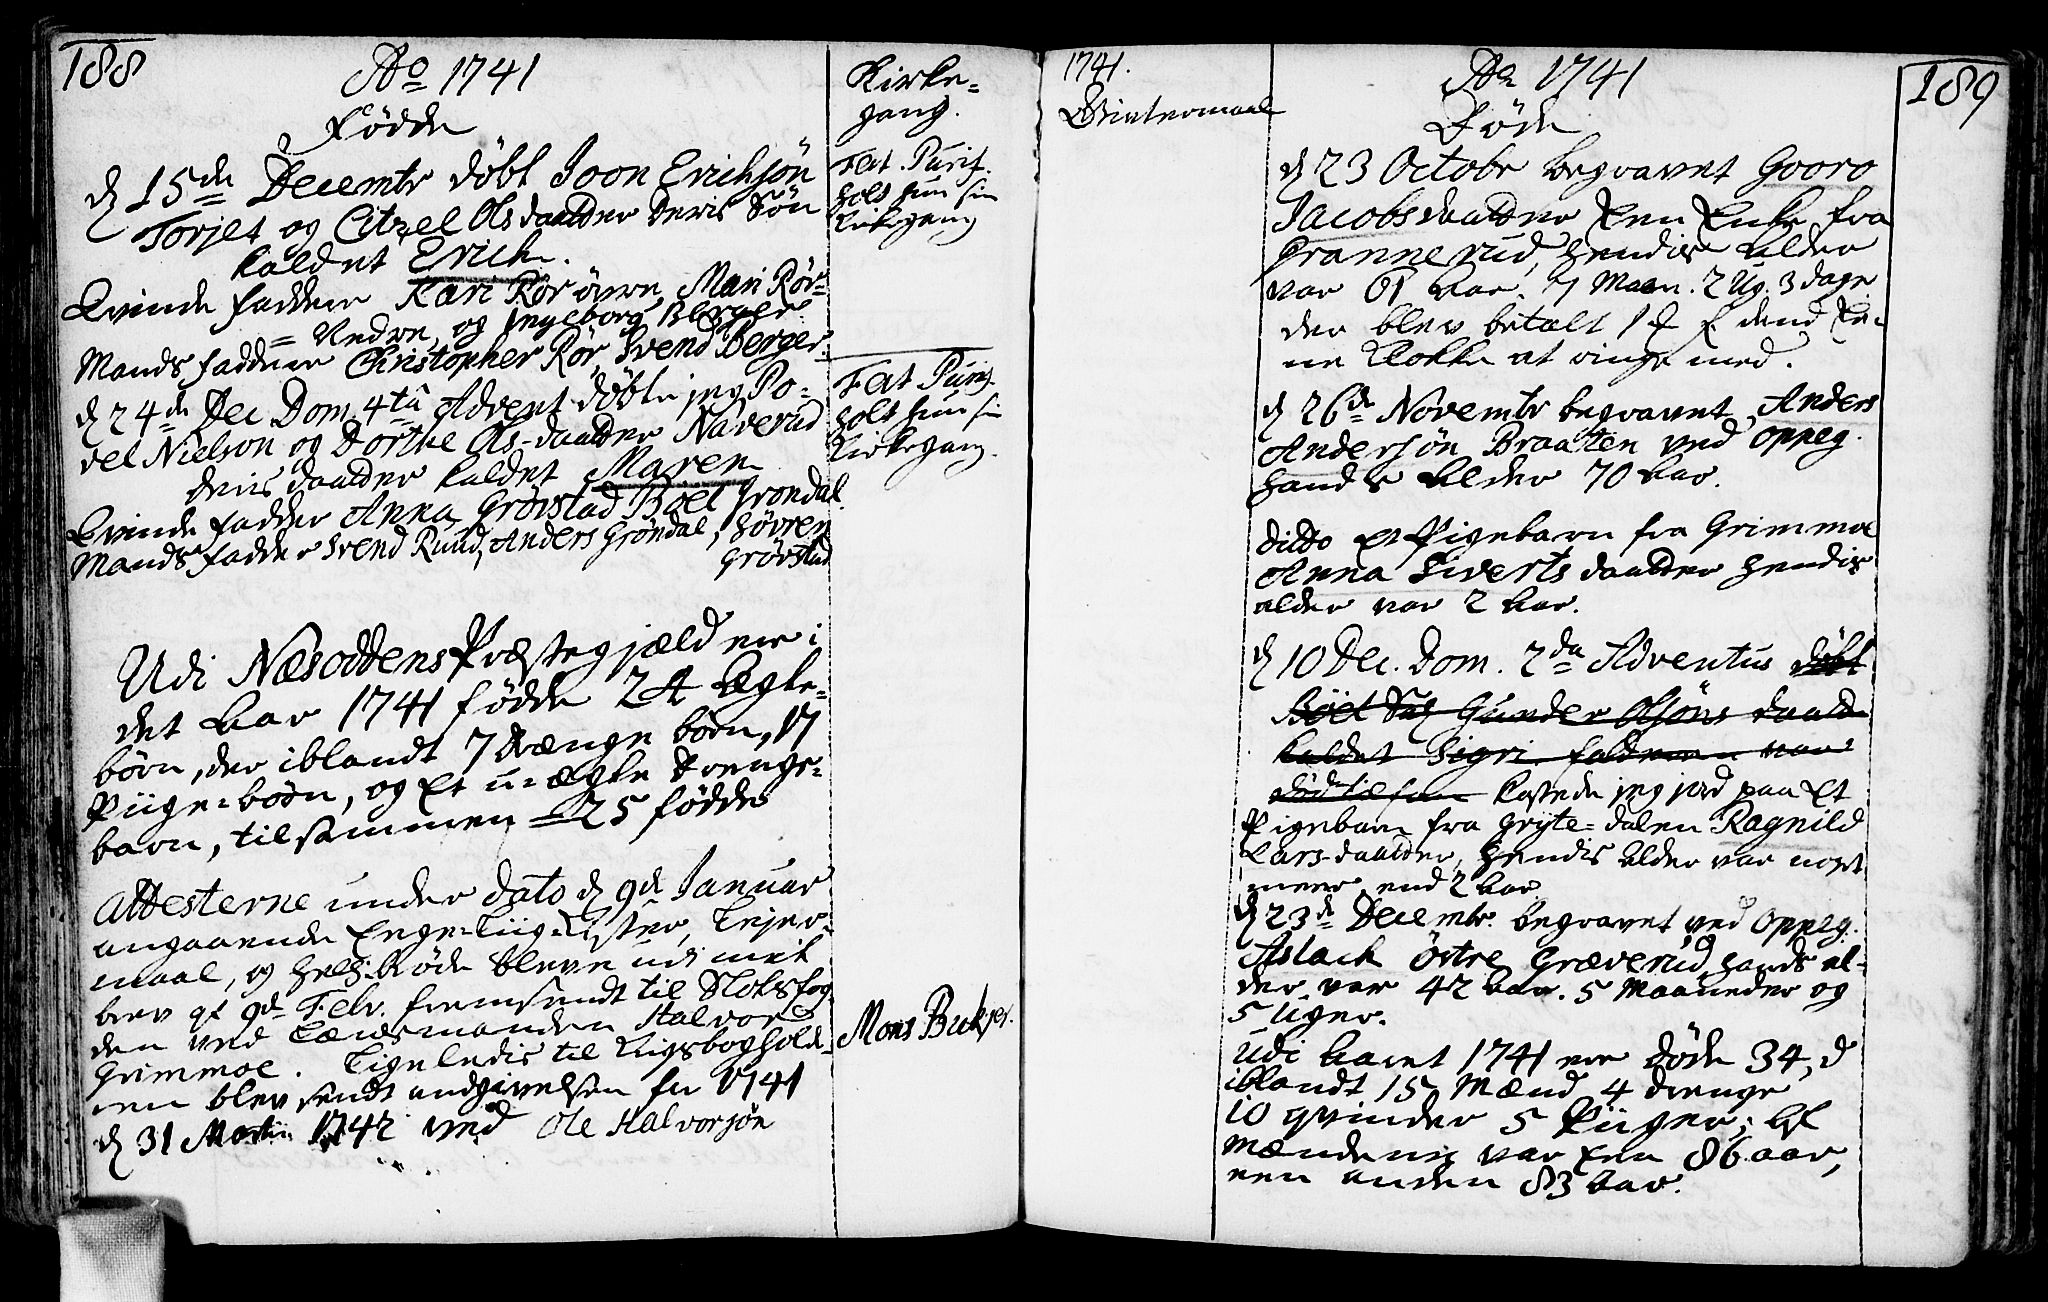 188
Ao 1741
Fødde
d 15de Decembr døbt Joon Erichsøn
Torjet og Citzel Olsdaatter deris Søn
kaldet Erich.
Qvinde faddere Kari Rør øvre, Mari Rør-
= Nedre, og Ingeborg Berger
Mands faddere Christopher Rør, Svend Berger.
d 24de Dec. Dom. 4ta Advent døbte jeg Po-
vel Nielson og Dorthe Ols-daatter Naverud
deris daatter kaldet Maren
Qvinde fadder Anna Grøvstad Boel Grøndal.
Mands fadder Svend Ruud, Anders Grøndal, Høvren
Grøvstad
Udi Næsoddens Præstegjæld ere i
det Aar 1741 fødde 24 Ægte-
børn, der iblandt 7 drænge børn, 17
Piige-børn, og Et u-ægte drenge-
barn, tilsammen 25 fødde
Attesterne under Dato d 9de Januar
angaaende
maal, og
brev af 9de Febr. fremsendt til Slotsfog-
den ved Lænsmanden Halvor
Grimmoe. Ligeledis til
ren blev sendt andgivelsen for 1741
d 31 Martii 1742 ved Ole Halvorsøn
Kirke-
gang.
Fest. Purif.
holt hun sin
Kirkegang
Fest Purif.
holt hun sin
Kirkegang.
Mons Bukjer.
1741.
Ao 1741
Døde
189
d 23 Octobr begravet Gooro
Jacobsdaatter Een Enke fra
Granne rud, hendis Alder
var 61 Aar. 7 Maan. 2 Ug. 3 dage
der blev betalt 1 f. dend Ee-
ne Klokke at ringe med.
d 26de Novembr begravet Anders
Andersøn Braaten ved Oppeg.
hands Alder 70 Aar.
ditto Et Pigebarn fra Grimmoe
Anna Siverts daatter hendis
alder var 2 Aar.
d 10 Dec. Dom. 2da Adventus døbt
Böel Gunder Olsøns daatter
kaldet Sigri. fadderen var
kastede jeg jord paa Et
Pigebarn fra Gryte-dalen Ragnild
Lars-daatter, hendis Alder var noget
meer end 2 Aar
d 23de Decembr. begravet ved Oppeg.
Aslack Östre Græverud, hands al-
der var 42 Aar. 5 Maaneder og
5 Uger.
Udi Aaret 1741 ere døde 34, d
iblandt 15 Mænd 4 drenge
10 qvinder 5 Piiger; af
Mændene var Een 86 aar,
een anden 83 Aar.